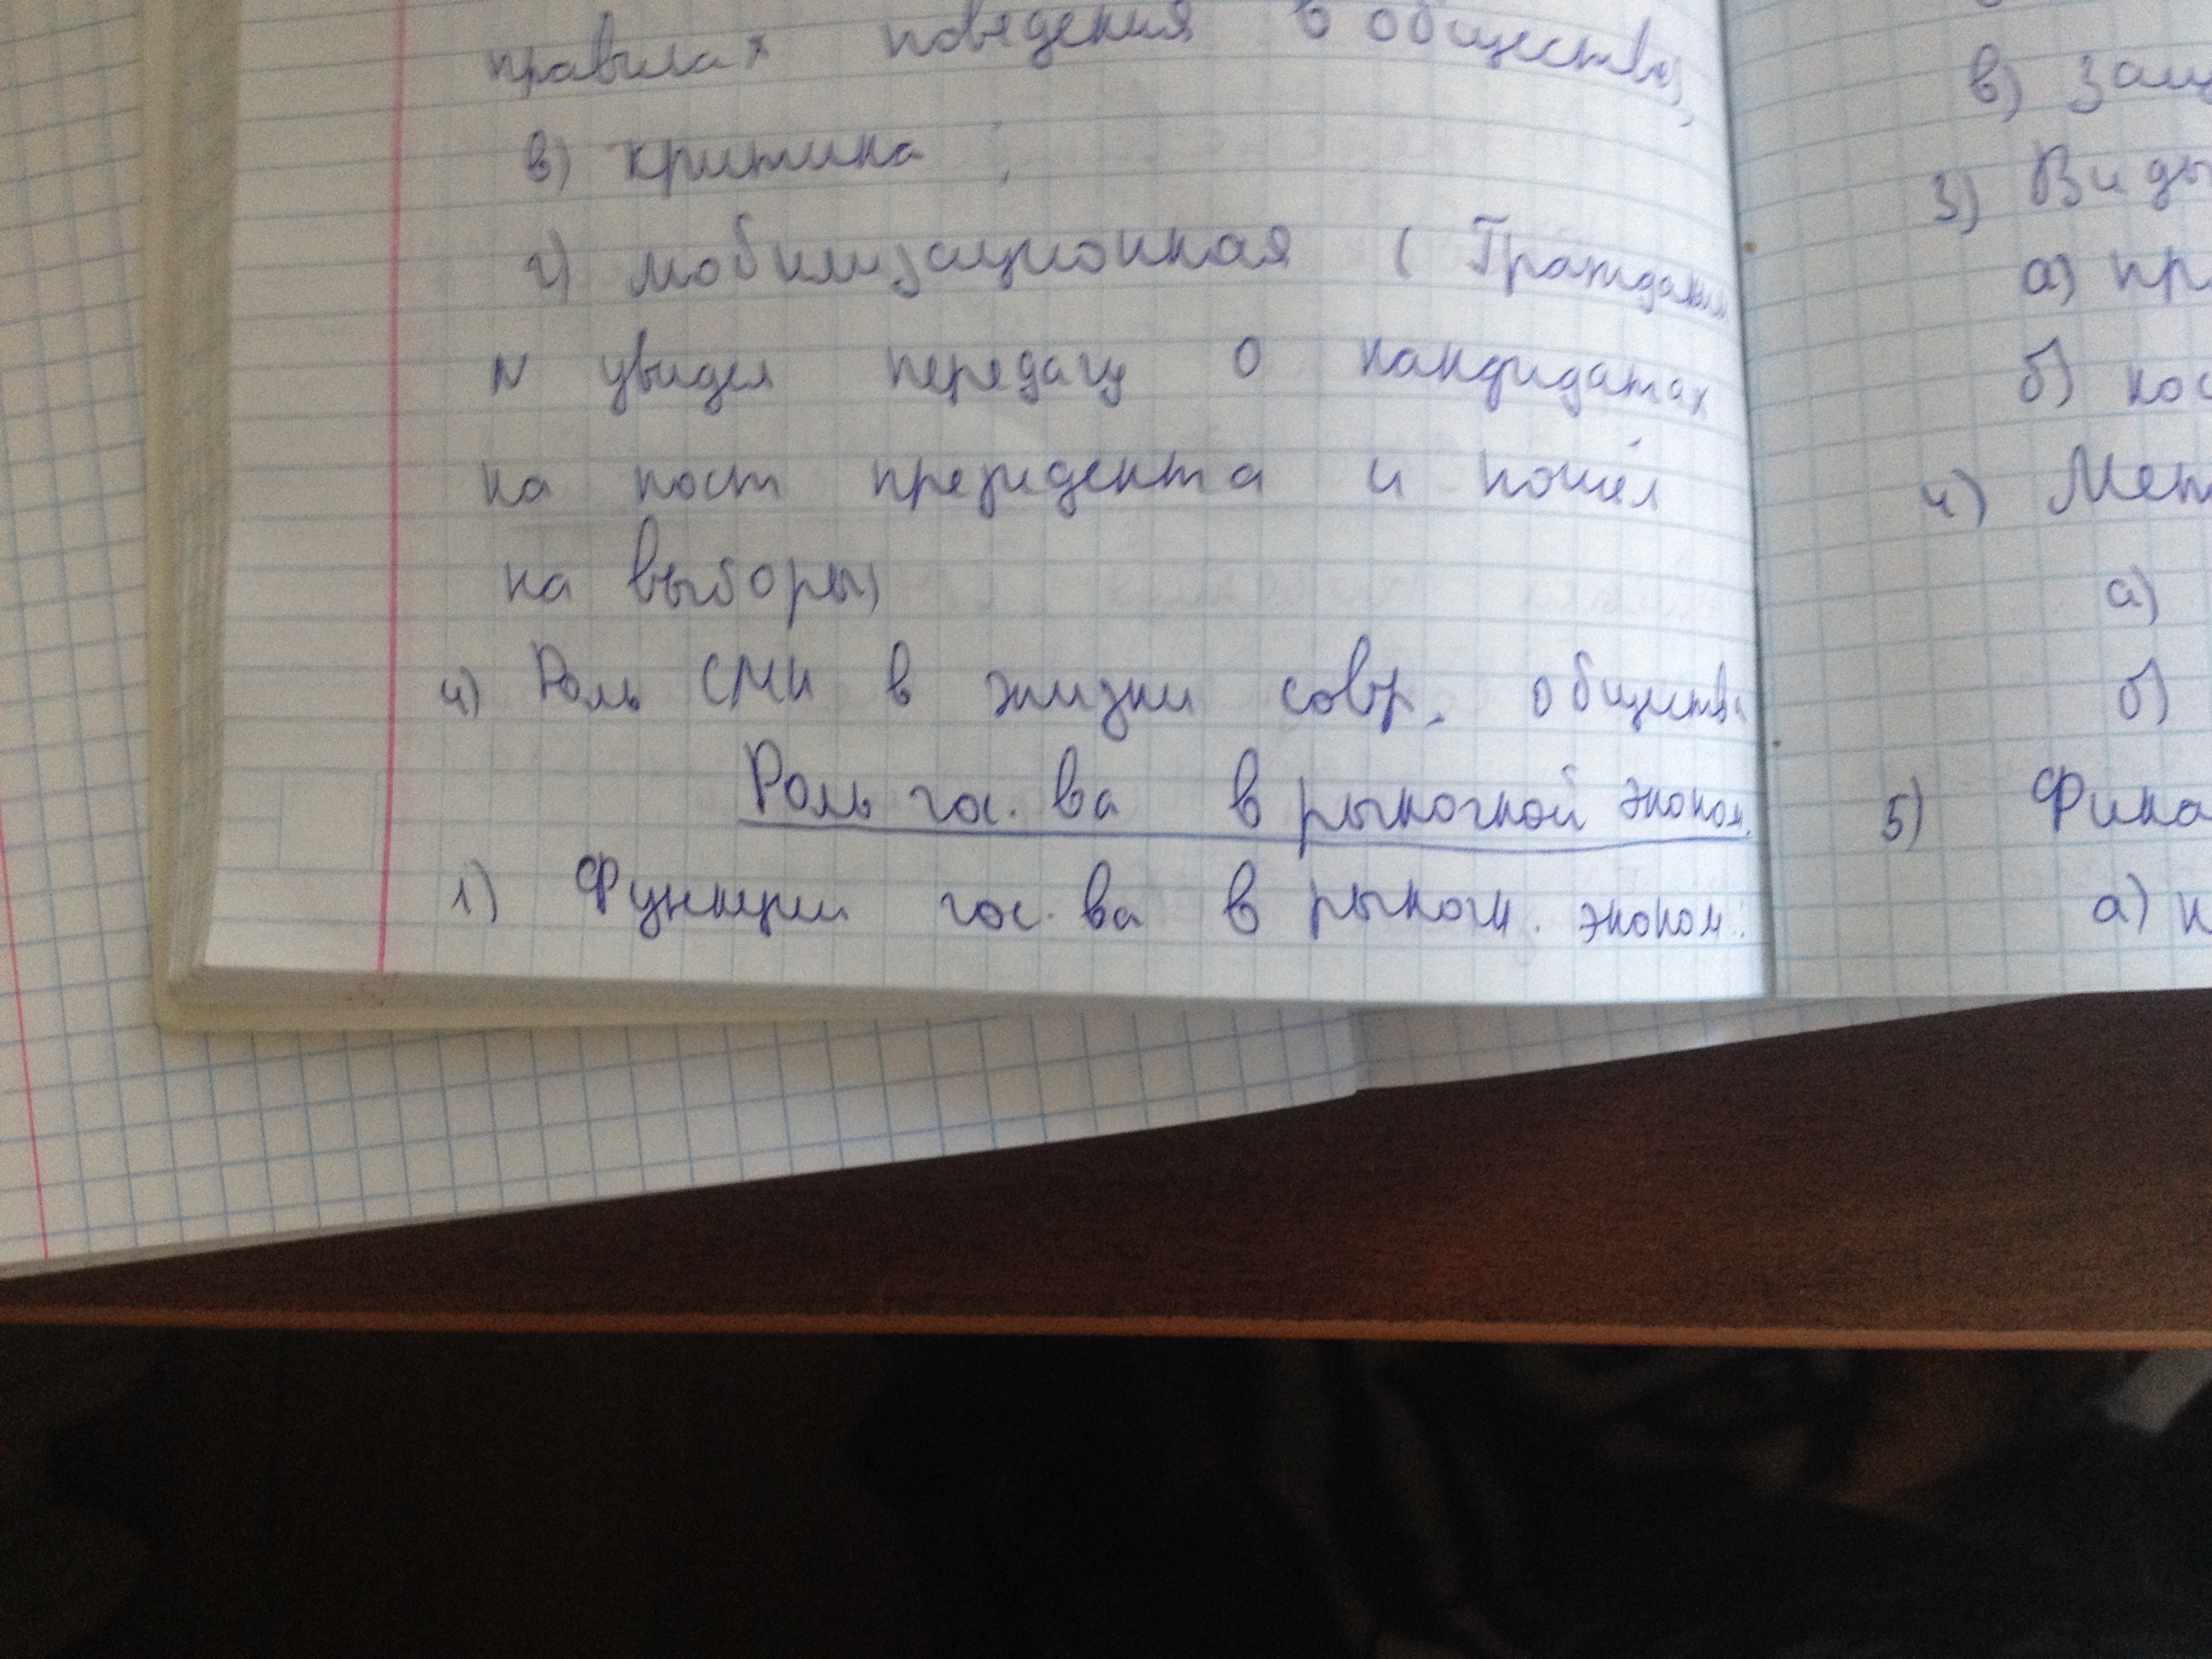 правилах поведения в обществе),
в) критика ;
г) мобилизационная ( Гражданин
N увидел передачу о кандидатах
на пост президента и пошёл
на выборы)
4) Роль СМИ в жизни совр. общества
Роль гос. ва в рыночной эконом.
1) Функции гос. ва в рыночн. эконом:
в) защ
3) Виды
а) пр
б) кос
4) Мет
а)
б)
5) Фина
а) к